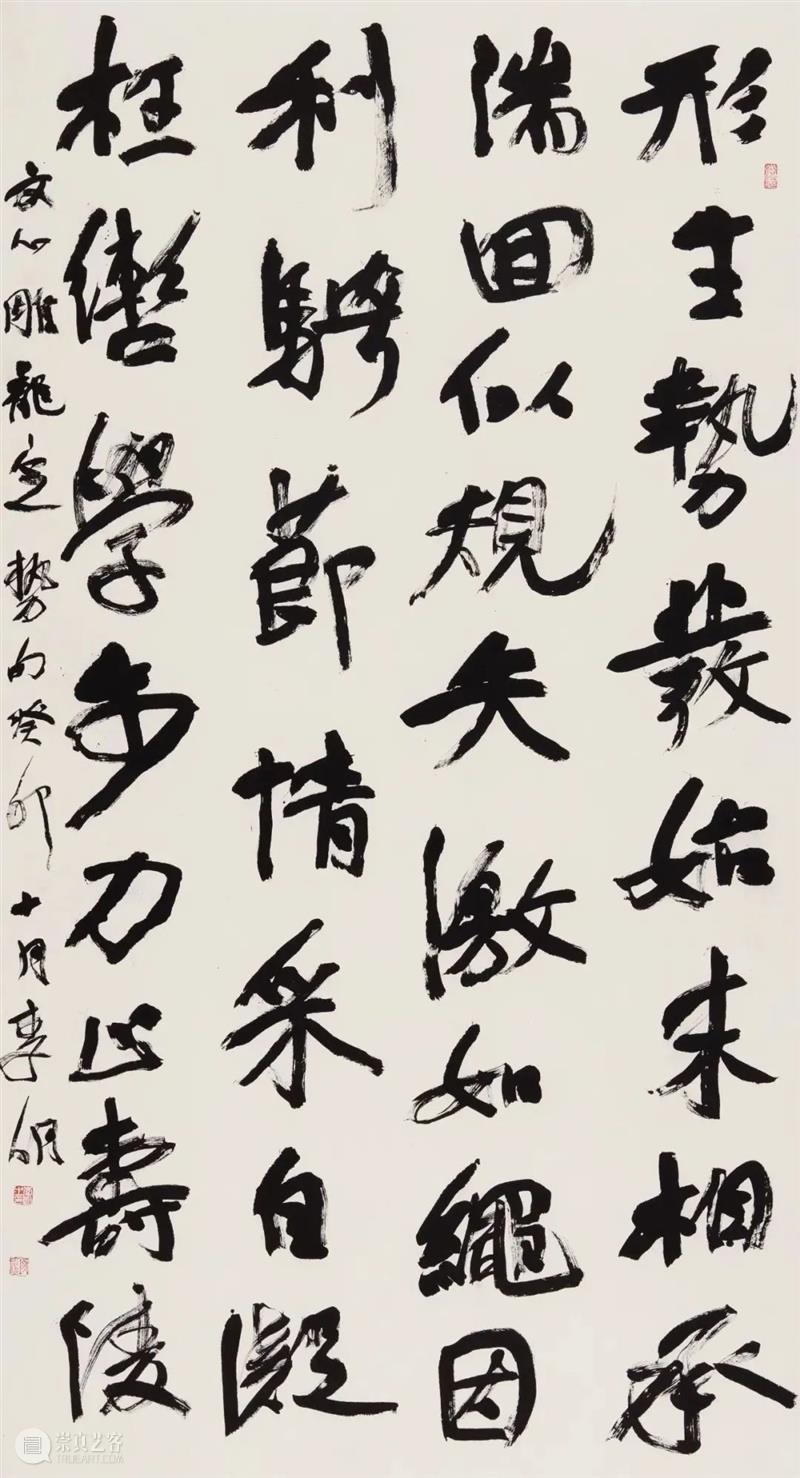 形生勢發始末相承
湍回似規矢激如繩因
利騁節情采自凝
枉轡學步力止壽陵
文心雕龍定勢句癸卯十月
崇真艺客
TRUEART.COM